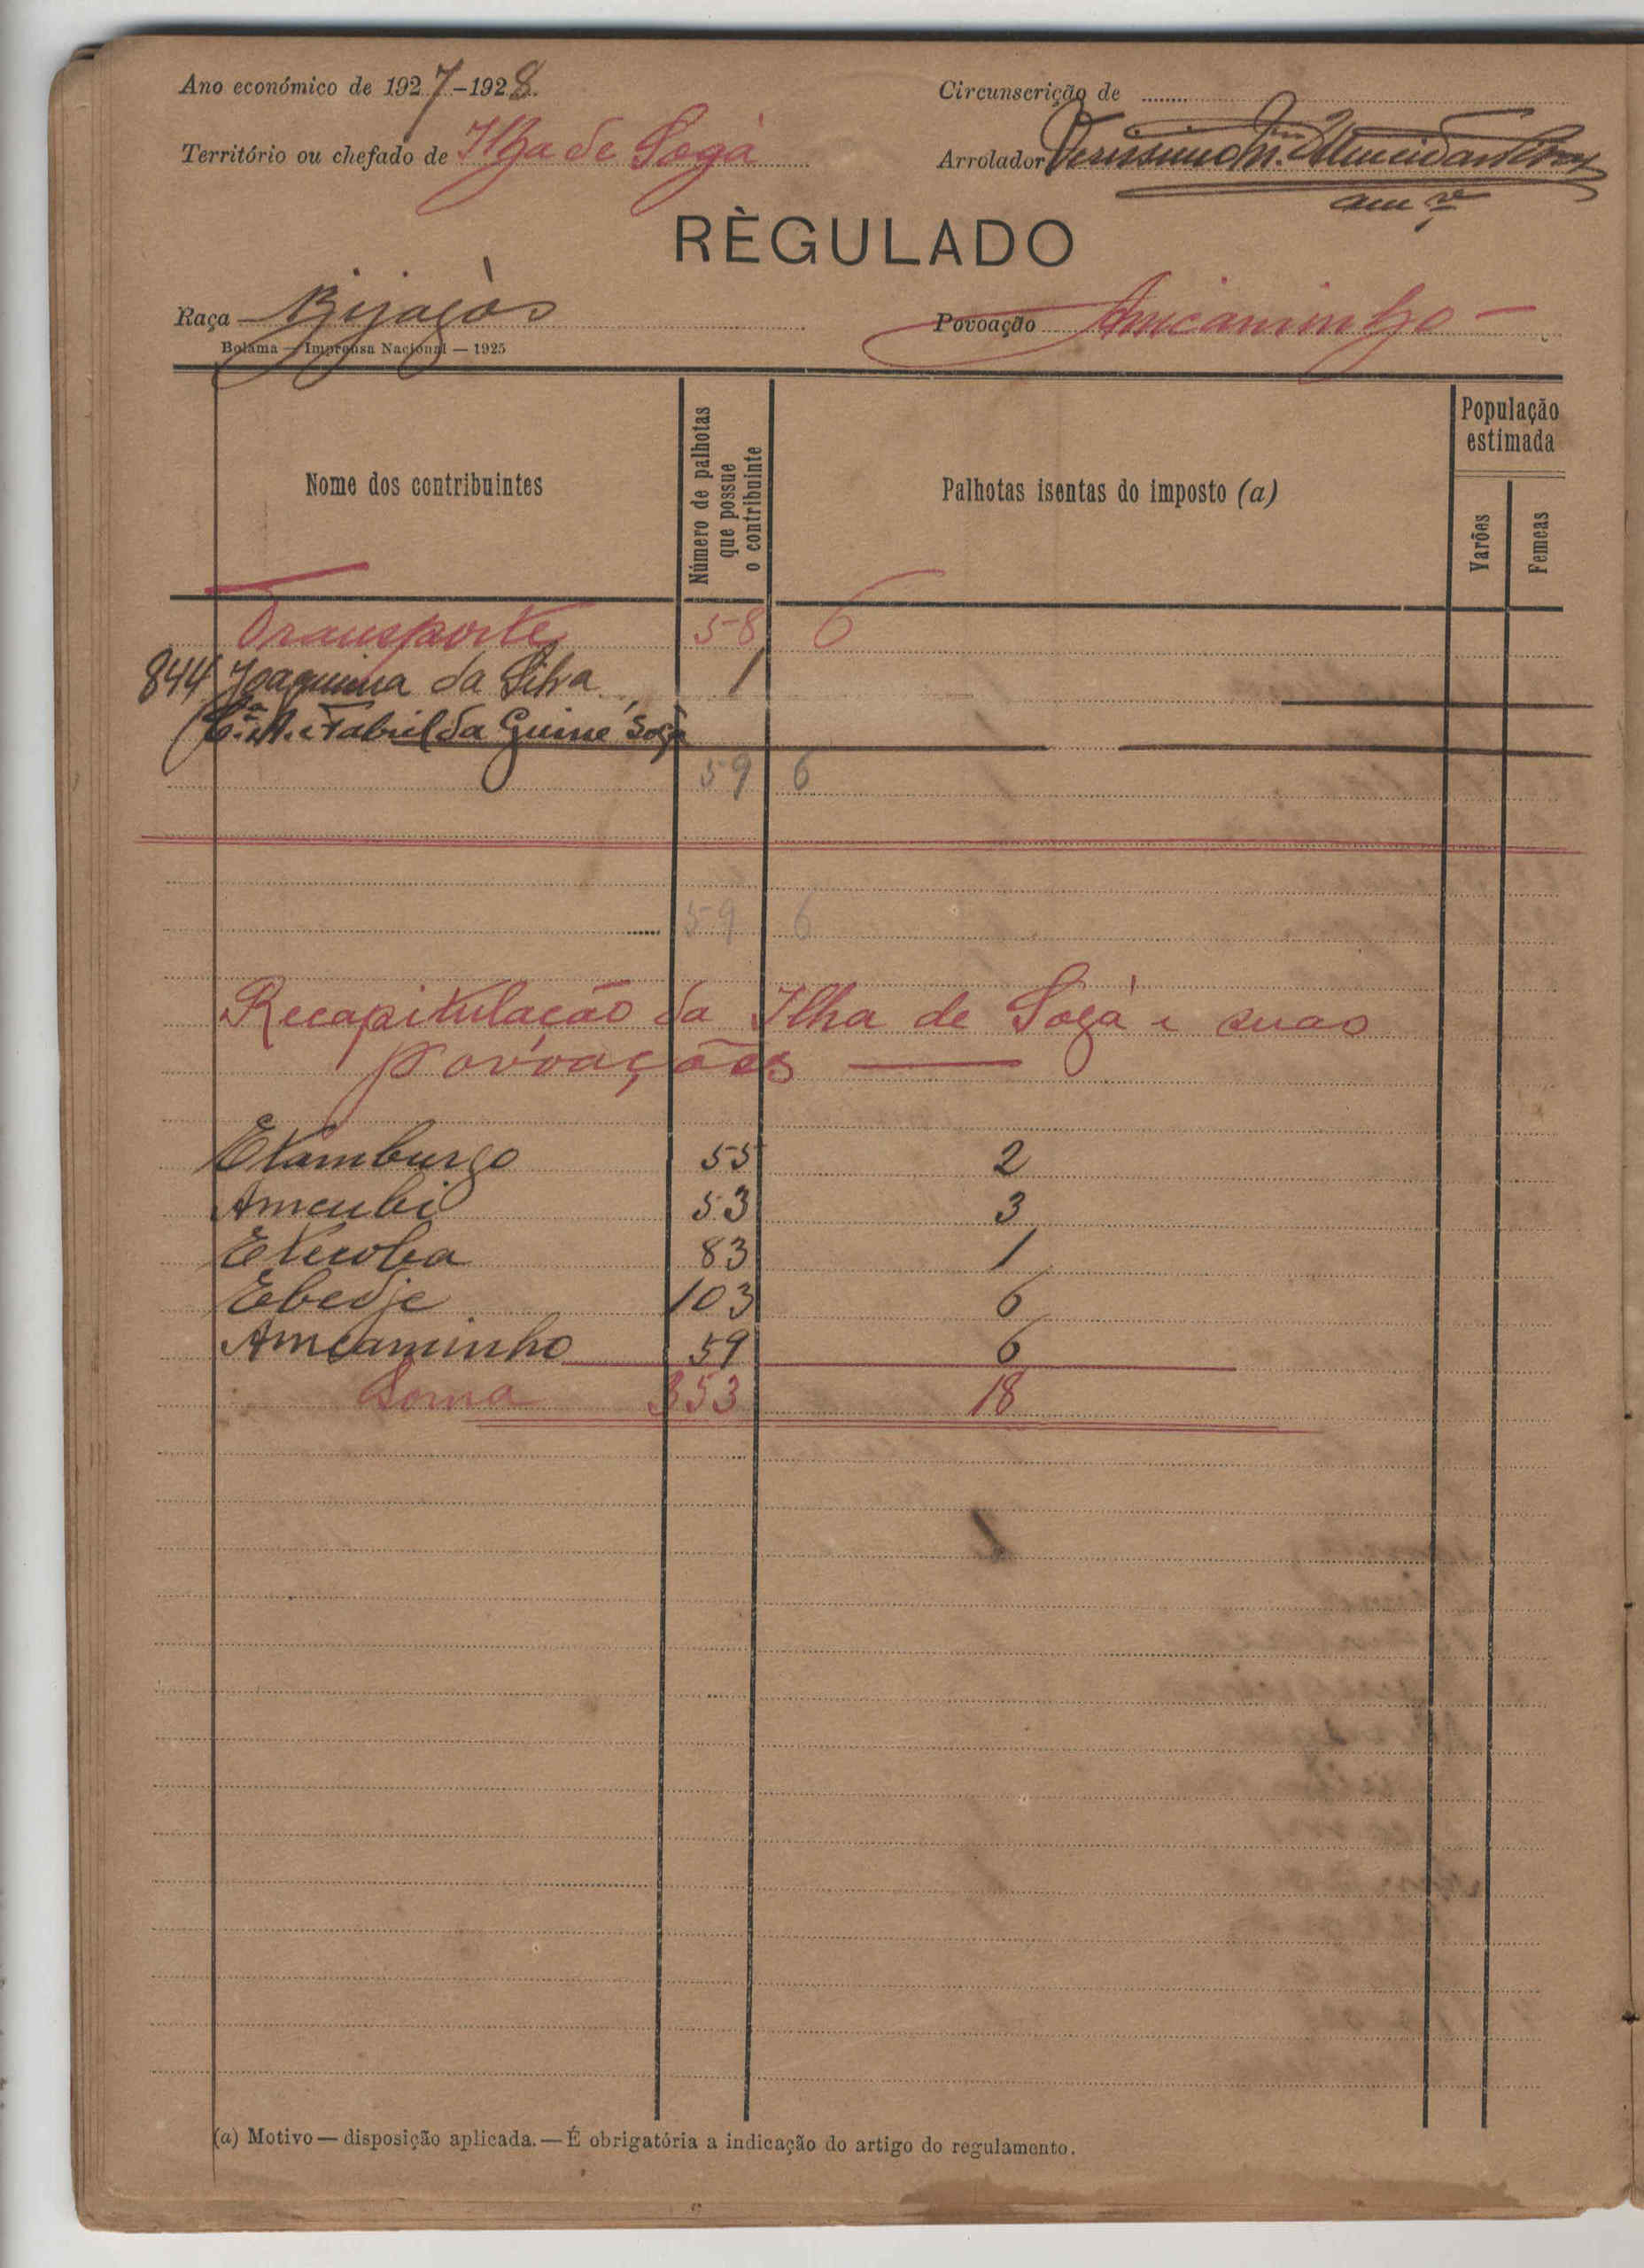 Ano económico de 1927-1928.
Circunscrição de
Território ou chefado de Ilha de Sogá
Arrolador Verissimo
RÈGULADO
Raça Bijagós
Povoação Amcaminho
Bolama — Imprensa Nacional — 1925
Nome dos contribuintes
Número de palhotas que possue o contribuinte
Palhotas isentas do imposto (a)
População estimada
Varões
Femeas
Transporte 58 6
844 Joaquima da Silva 1
(C.ª A. e Fabril da Guiné Sogá
59 6
59 6
Recapitulação da Ilha de Sogá e suas
povoações
Etamburgo 55 2
Amcubi 53 3
Eticoba 83 1
Ebedje 103 6
Amcaminho 59 6
Soma 353 18
(a) Motivo — disposição aplicada. — É obrigatória a indicação do artigo do regulamento.